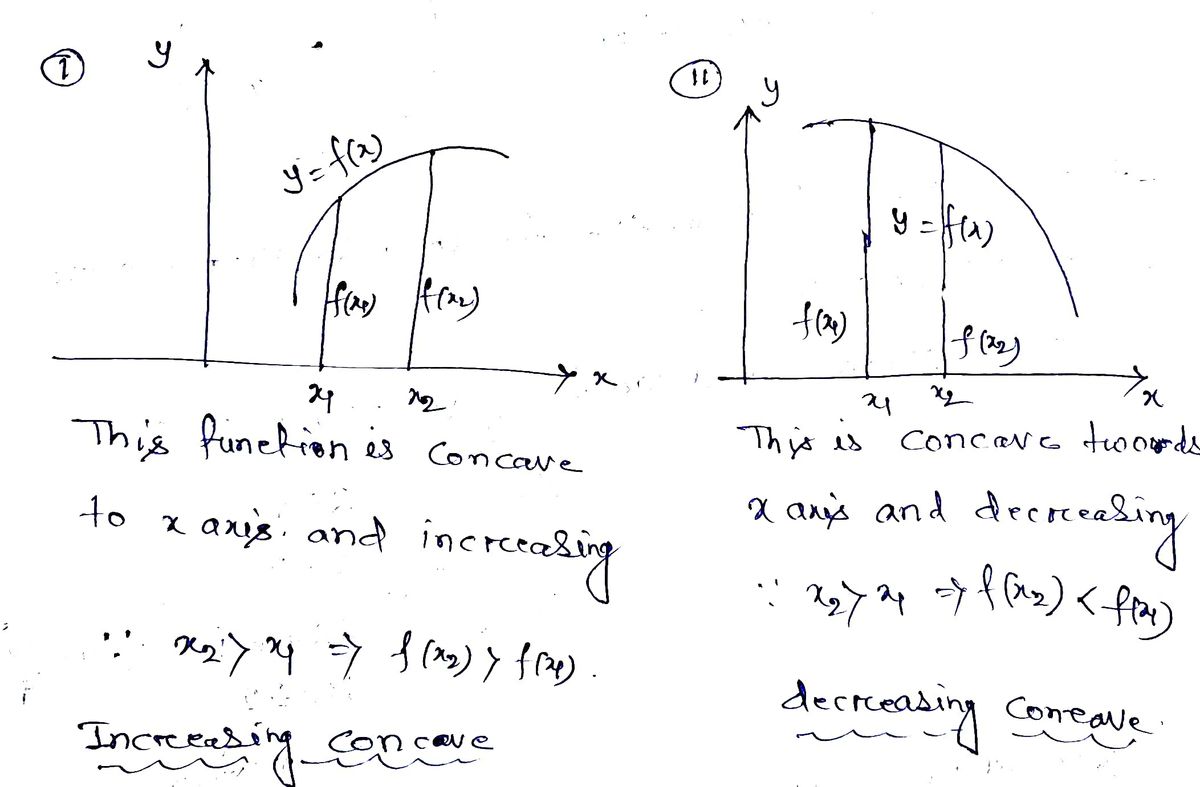 I
y
y = f(x)
f(x₁)
f(x₂)
x
x₁
x₂
This function is concave
to x axis. and increasing
∵ x₂ > x₁ ⇒ f(x₂) > f(x₁).
Increasing concave
II
y
y = f(x)
f(x₁)
f(x₂)
x₁
x₂
x
This is concave
x axis and decreasing
∵ x₂ > x₁ ⇒ f(x₂) < f(x₁)
decreasing concave.